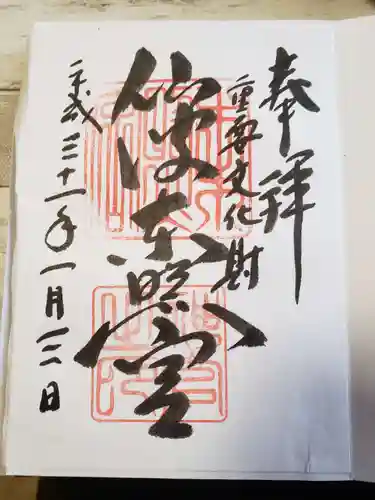 奉拝
重要文化財
仙波東照宮
平成三十一年一月三日